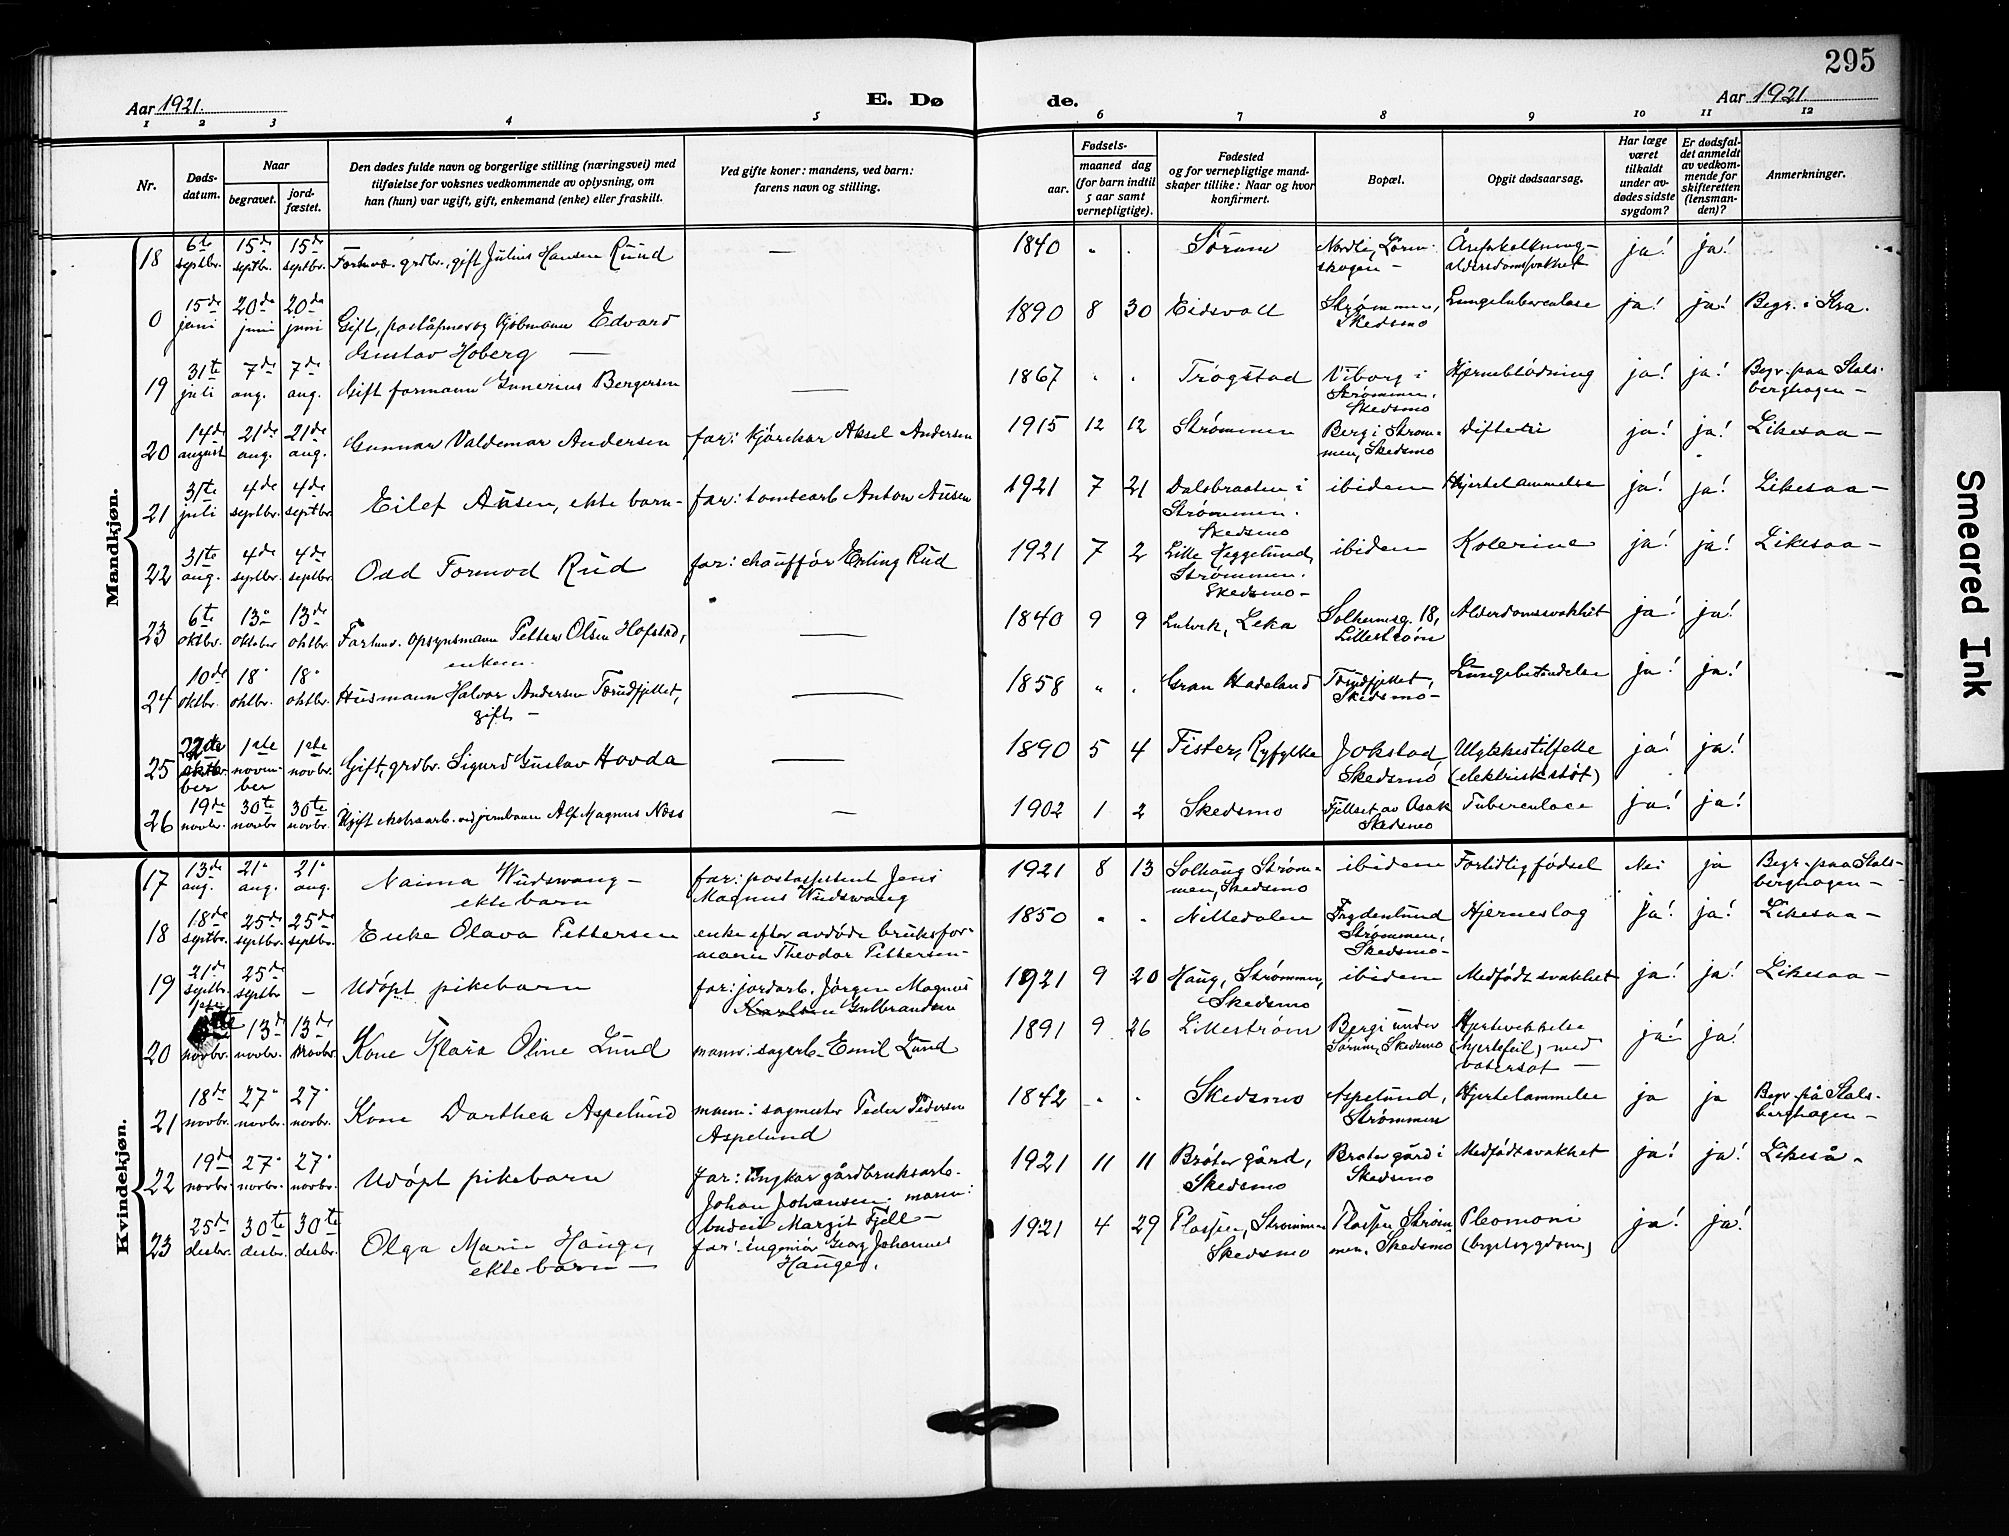 295
Aar 1921.
E. Dø de.
Aar 1921
1 2 3 4 5 6 7 8 9 10 11 12
Nr.
Døds-
datum.
Naar
begravet.
jord-
fæstet.
Den dødes fulde navn og borgerlige stilling (næringsvei) med
tilføielse for voksnes vedkommende av oplysning, om
han (hun) var ugift, gift, enkemand (enke) eller fraskilt.
Ved gifte koner: mandens, ved barn:
farens navn og stilling.
Fødsels-
aar.
maaned dag
(for barn indtil
5 aar samt
vernepligtige).
Fødested
og for vernepligtige mand-
skaper tillike: Naar og hvor
konfirmert.
Bopæl.
Opgit dødsaarsag.
Har læge
været
tilkaldt
under av-
dødes sidste
sygdom?
Er dødsfal-
det anmeldt
av vedkom-
mende for
skifteretten
(lensman-
den)?
Anmerkninger.
Mandkjøn.
18 6te septbr. 15de septbr. 15de septbr. Forhv. grdbr., gift Julius Hansen Ruud — 1840 " . Sørum Nordli, Løren-
skogen - Åreforkalkning - alderdomsvakhet ja! ja!
0 15de juni 20de juni 20de juni Gift, poståpner og kjøbmann Edvard
Gustav Hoberg — 1890 8 30 Eidsvoll Strømmen,
Skedsmo Lungetuberculose ja! ja! Begr. i Kra.
19 31te juli 7de aug. 7de aug. Gift formann Gunerius Bergersen — 1867 " . Trøgstad Viborg i
Strømmen,
Skedsmo Hjerneblødning ja! ja! Begr. paa Stals-
berghagen -
20 14de august 21de aug. 21de aug. Gunnar Valdemar Andersen far: kjørekar Aksel Andersen 1915 12 12 Strømmen Berg i Strøm-
men, Skedsmo Difteri ja! ja! Likesaa -
21 31te juli 4de septbr. 4de septbr. Eilef Ausen, ekte barn - far: tomtearb. Anton Ausen 1921 7 21 Dalsbraaten i
Strømmen.
Skedsmo ibidem Hjertelammelse ja! ja! Likesaa -
22 31te aug. 4de septbr. 4de septbr. Odd Tormod Rud far: chauffør Erling Rud 1921 7 2 Lille Heggelund,
Strømmen.
Skedsmo - ibidem Kolerine ja! ja! Likesaa -
23 6te oktbr. 13de oktober 13de oktbr. Forhv. opsynsmann Petter Olsen Hofstad,
enkem. — 1840 9 9 Leka Solheimsg. 18,
Lillestrøm Alderdomsvakhet ja! ja!
24 10de oktbr. 18" oktbr. 18" oktbr. Husmann Halvor Andersen Tærudfjellet,
gift - — 1858 " . Gran Hadeland Tærudfjellet,
Skedsmo - Lungebetændelse ja! ja!
25 22de ber 1ste novem-
ber 1ste novbr. Gift, grdbr. Sigurd Gustav Hovda — 1890 5 4 Fister, Ryfylke Jokstad
Skedsmo Ulykkestilfelle
(elektrisk støt) ja! ja!
26 19de novbr. 30te novbr 30te novbr. Gift ekstraarb. ved jernbanen Alf Magnus Næss — 1902 1 2 Skedsmo Fjellset av Asak
Skedsmo Tuberculose ja! ja!
Kvindekjøn.
17 13de aug. 21" aug. 21" aug. Naima Wudswang -
ekte barn far: postassistent Jens
Magnus Wudswang 1921 8 13 Solhaug Strøm-
men, Skedsmo ibidem Fortidlig fødsel Nei ja Begr. paa Stals-
berghagen -
18 18de septbr. 25de septbr. 25de septbr. Enke Olava Pettersen enke efter avdøde bruksfor-
mann Theodor Pettersen - 1850 " " Nittedalen Frydenlund
Strømmen,
Skedsmo - Hjerneslag ja! ja! Likesaa -
19 21de septbr. 25de septbr — Udøpt pikebarn far: jordarb. Jørgen Magnus
Karlsen Gulbrandsen 1921 9 20 Haug, Strømmen,
Skedsmo ibidem Medfødt svakhet ja! ja! Likesaa -
20 1ste novbr. 13de novbr. 13de novbr. Kone Klara Oline Lund mann: sagarb. Emil Lund 1891 9 26 Lillestrøm Berg i under
Sørum, Skedsmo Hjertelammelse
(hjertefeil) med
vatersot - ja! ja!
21 18de novbr. 27" novbr. 27" novbr. Kone Dorthea Aspelund mann: sagmester Peder Pedersen
Aspelund 1842 " . Skedsmo Aspelund,
Strømmen Hjertelammelse ja ja Begr. på Stals-
berghagen -
22 19de novbr. 27" novbr. 27" novbr. Udøpt pikebarn far: Ungkar gårdbruksarb.
Johan Johansen. moren:
budeie Margit Fjell - 1921 11 11 Bråter gård,
Skedsmo Bråter gård i
Skedsmo Medfødt svakhet ja! ja! Likeså -
23 25de desbr. 30te desbr. 30te desbr. Olga Marie Hauger,
ekte barn - far: Ingeniør Georg Johannes
Hauger. 1921 4 29 Plassen, Strømmen
Skedsmo Plassen Strøm-
men. Skedsmo Pleomoni
(brystsygdom) ja! ja!
Smeared Ink